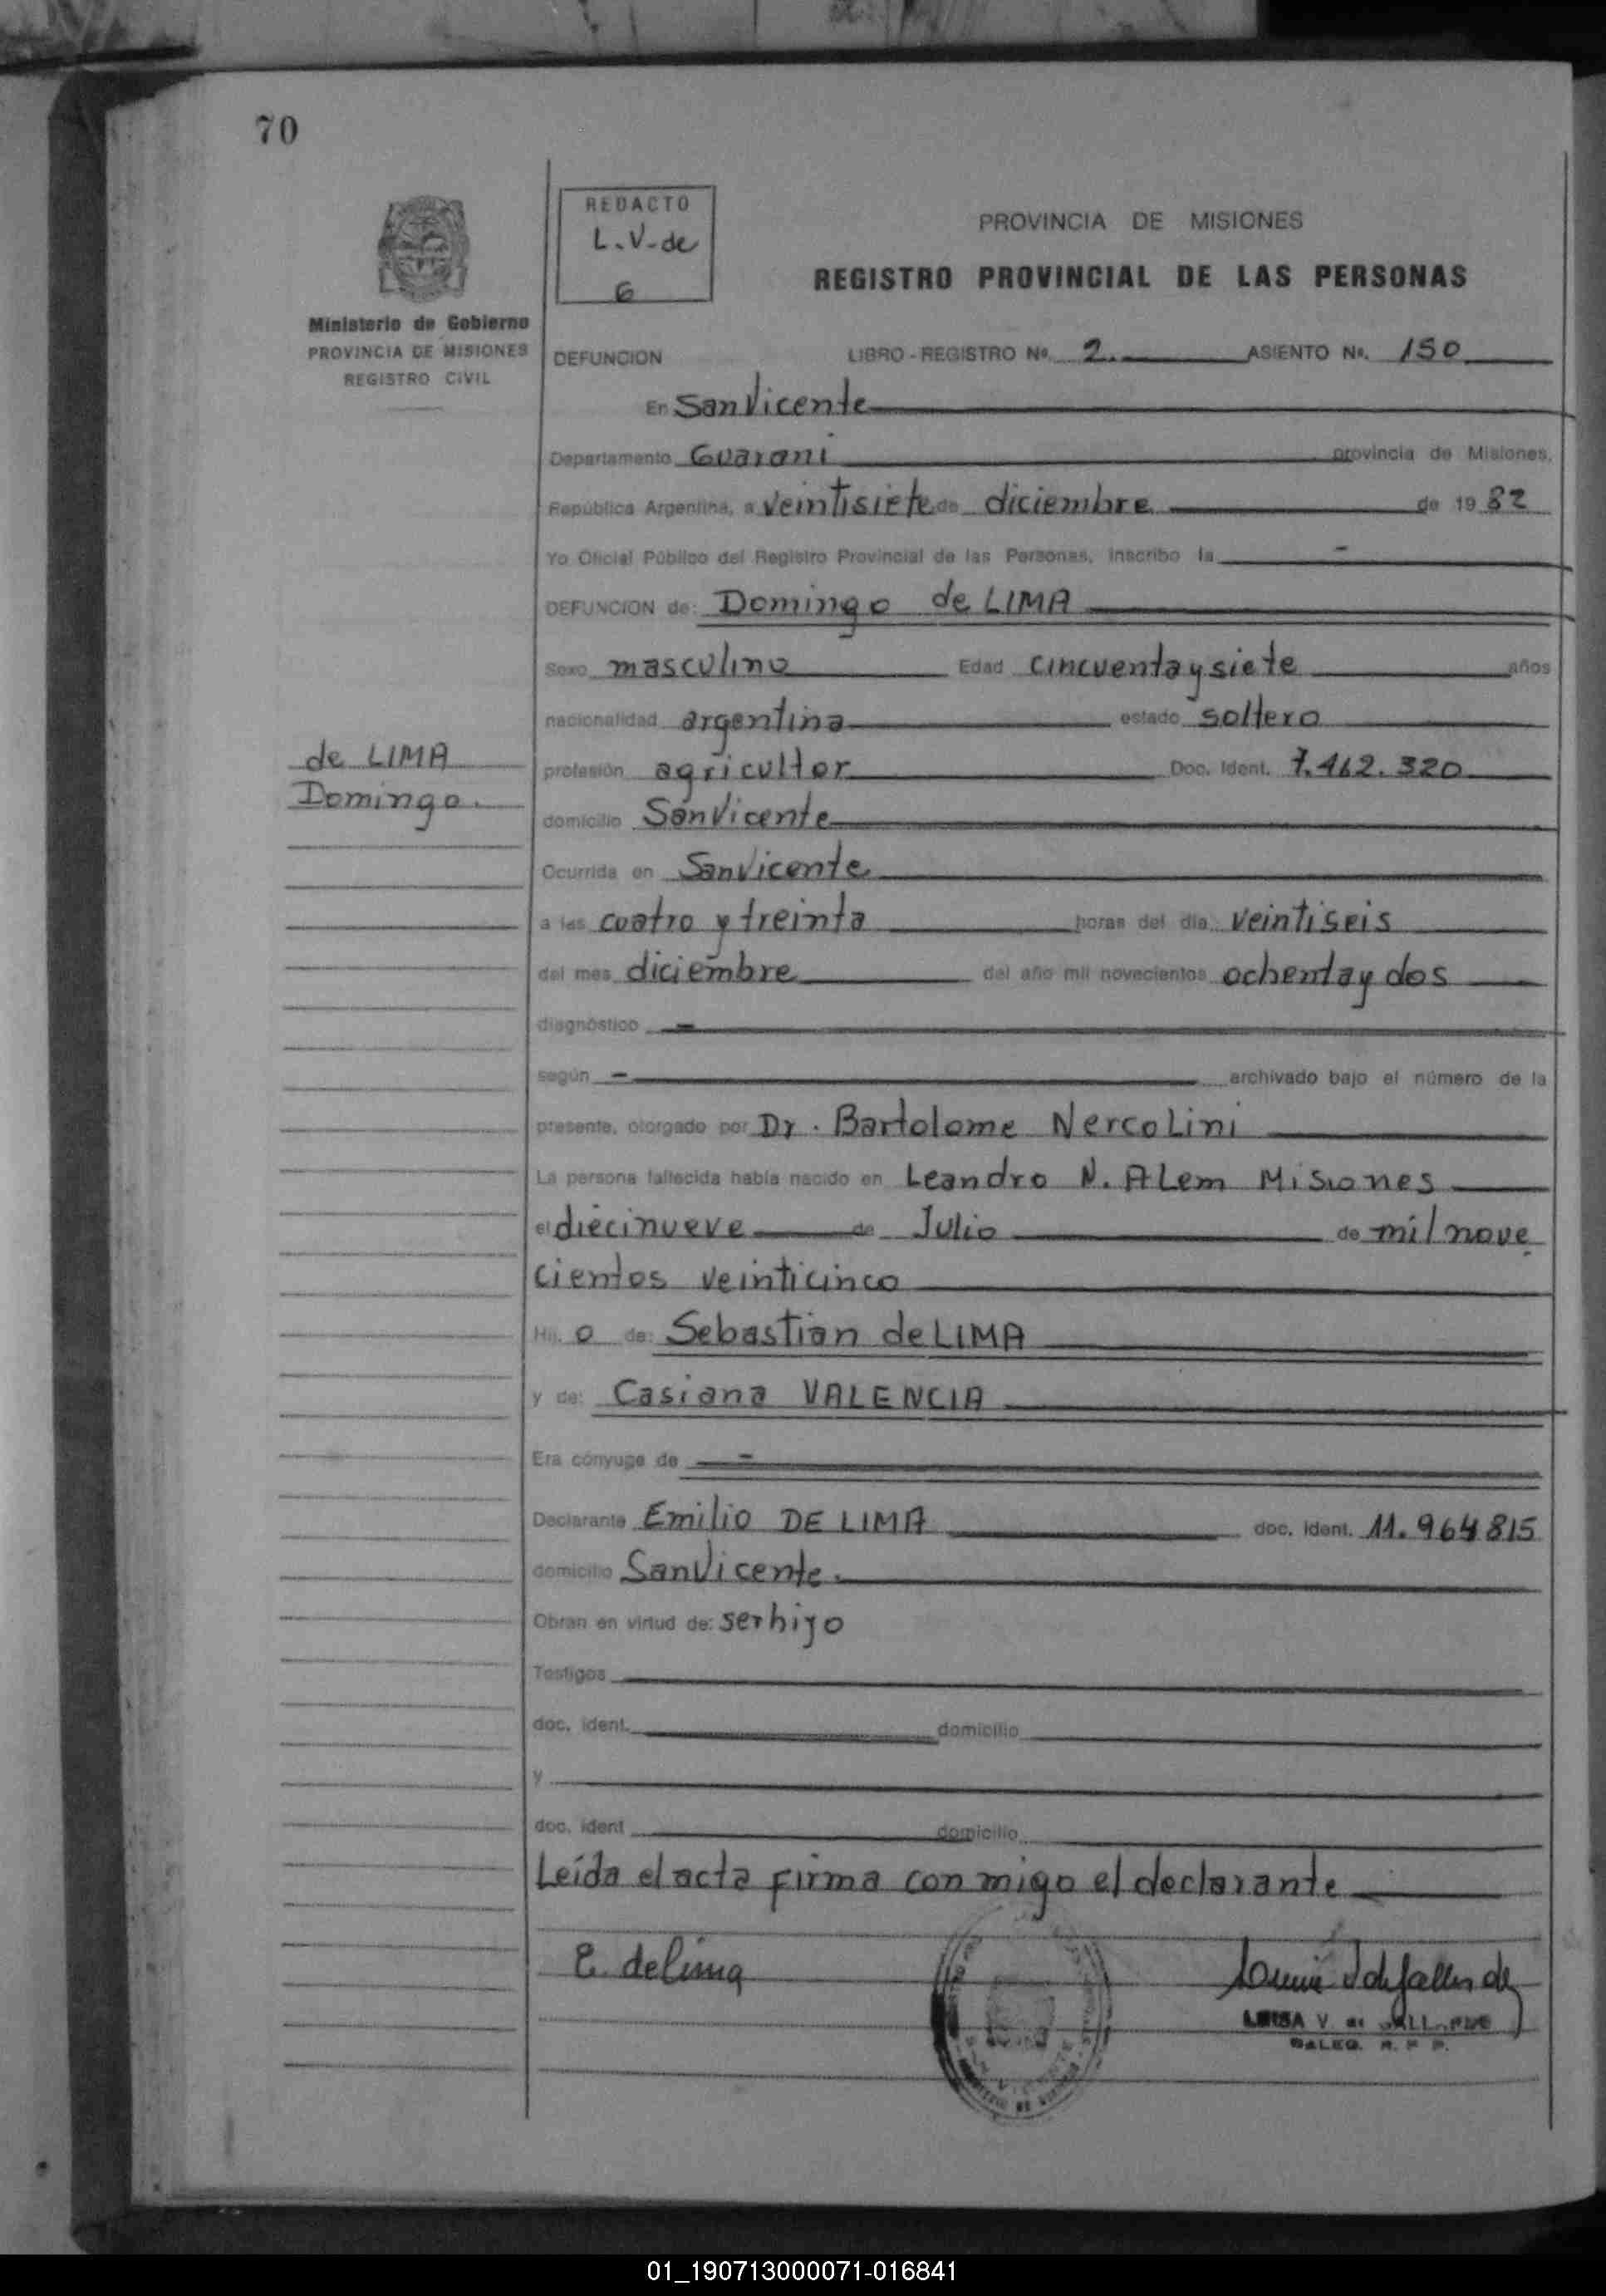 70
REDACTO
L. V. de
G
PROVINCIA DE MISIONES
REGISTRO PROVINCIAL DE LAS PERSONAS
Ministerio de Gobierno
PROVINCIA DE MISIONES
REGISTRO CIVIL
DEFUNCION LIBRO - REGISTRO Nº. 2. ASIENTO Nº. 150
En San Vicente
Departamento Guarani provincia de Misiones,
República Argentina, a veintisiete de diciembre de 19 82
Yo Oficial Público del Registro Provincial de las Personas, inscribo la -
DEFUNCION de: Domingo de LIMA
Sexo masculino Edad cincuenta y siete años
nacionalidad argentina estado soltero
de LIMA
Domingo.
profesión agricultor Doc. Ident. 7.462.320
domicilio San Vicente
Ocurrida en San Vicente
a las cuatro y treinta horas del día veintiseis
del mes diciembre del año mil novecientos ochenta y dos
diagnóstico -
según - archivado bajo el número de la
presente, otorgado por Dr. Bartolome Nercolini
La persona fallecida había nacido en Leandro N. Alem Misiones
el diecinueve de Julio de mil nove
cientos veinticinco
Hij. o de: Sebastian de LIMA
y de: Casiana VALENCIA
Era cónyuge de -
Declarante Emilio DE LIMA doc. ident. 11.964815
domicilio San Vicente.
Obran en virtud de: ser hijo
Testigos
doc. ident. domicilio
y
doc. ident domicilio
Leída el acta firma con migo el declarante
E. de Lima
LUISA V. de
01_190713000071-016841